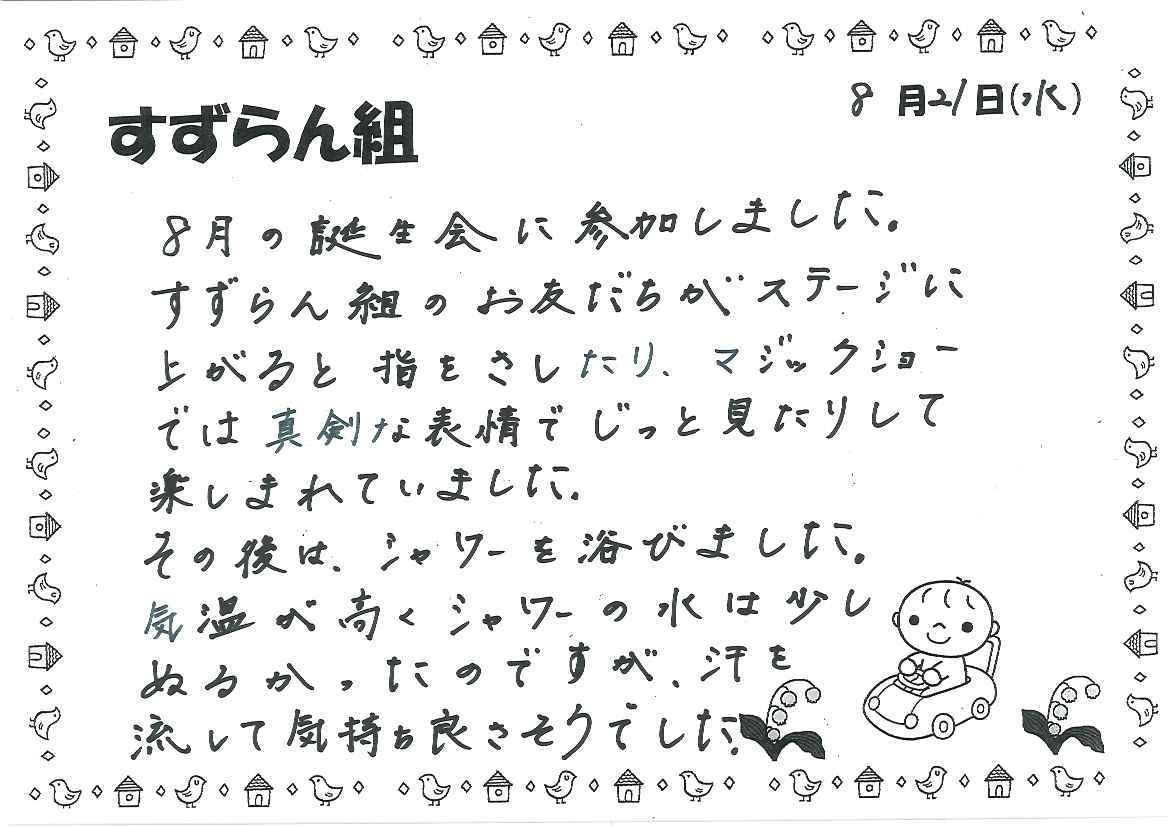 8月21日(水)
すずらん組
8月の誕生会に参加しました。
すずらん組のお友だちがステージに
上がると指をさしたり、マジックショー
では真剣な表情でじっと見たりして
楽しまれていました。
その後は、シャワーを浴びました。
気温が高くシャワーの水は少し
ぬるかったのですが、汗を
流して気持ち良さそうでした。